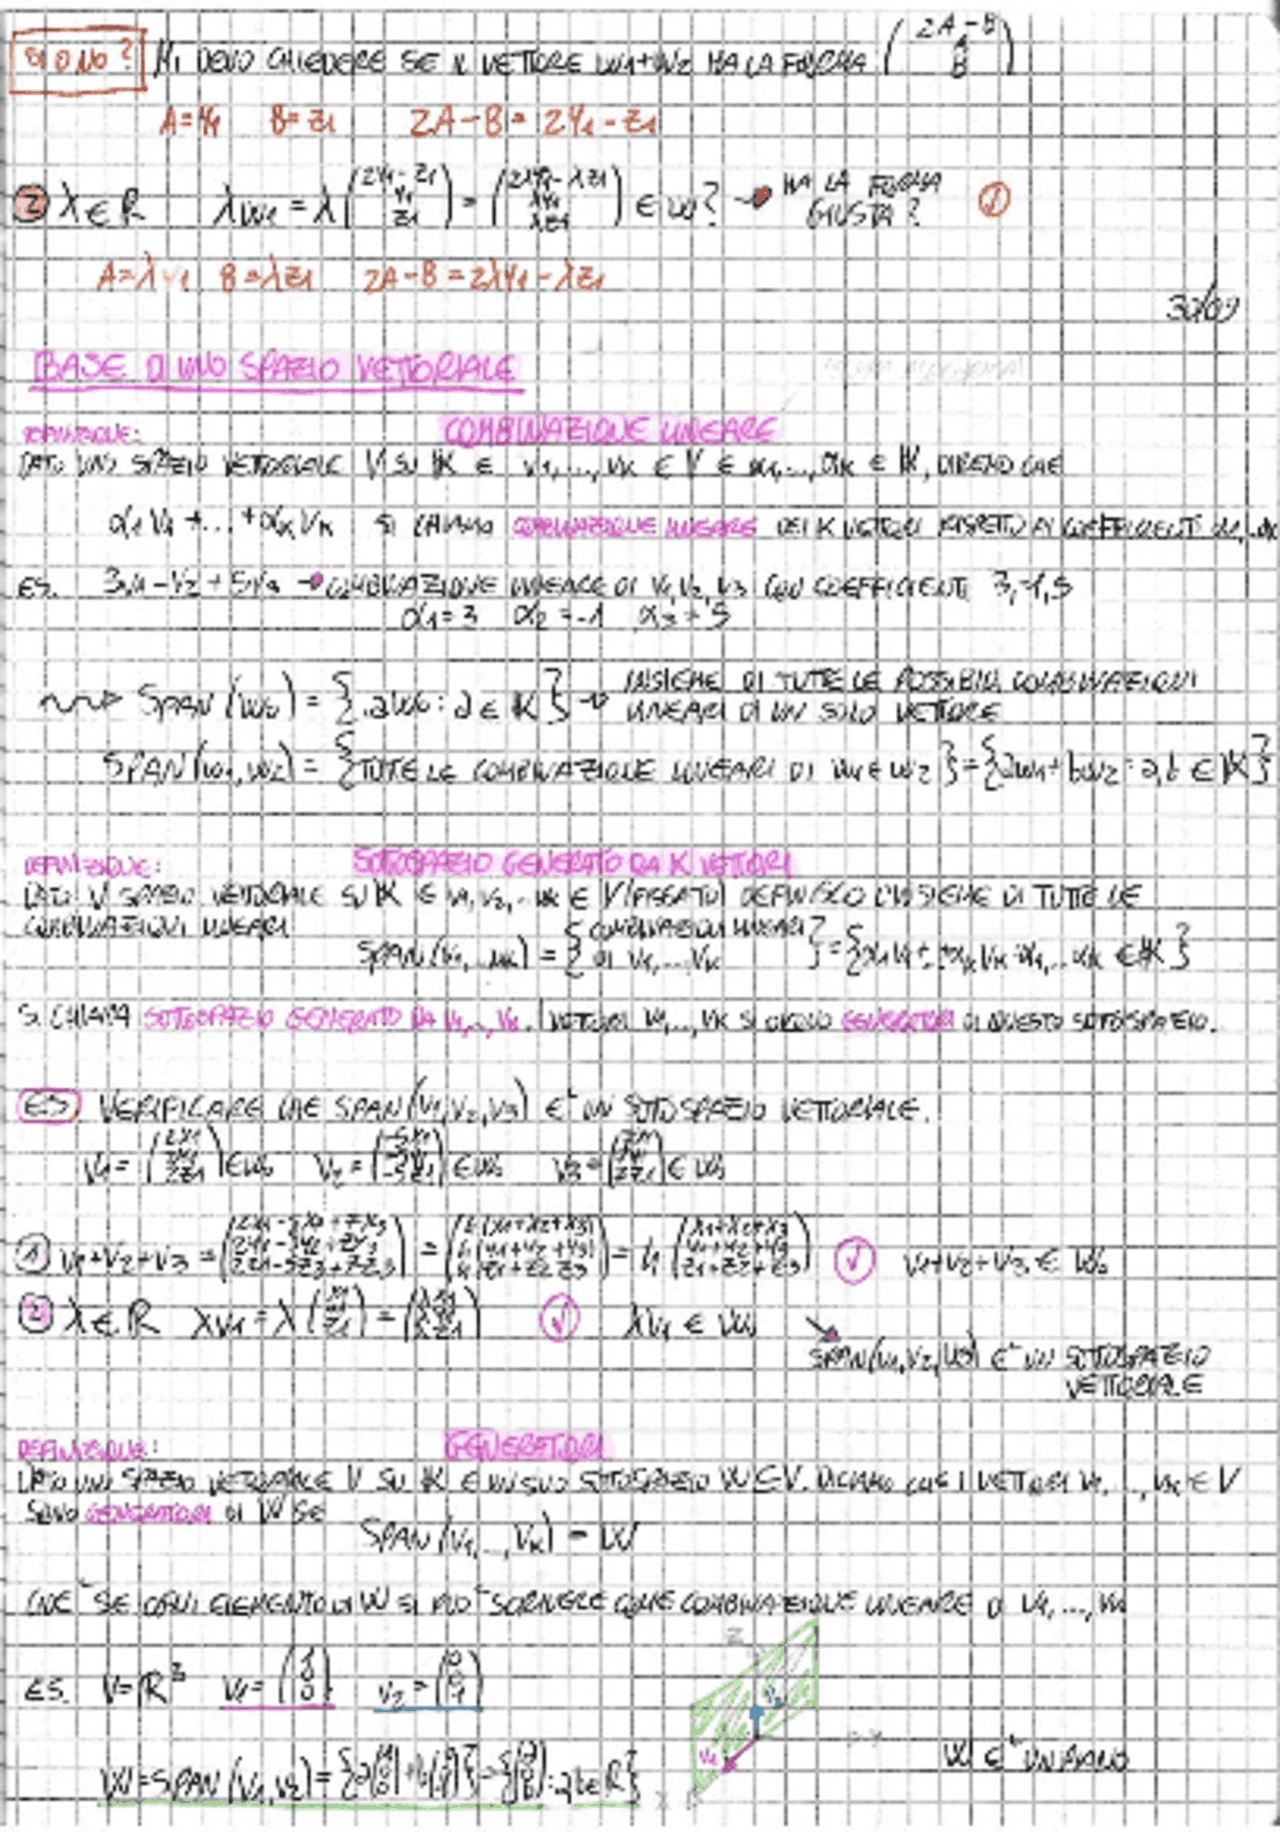 SI O NO? MI DEVO CHIEDERE SE IL VETTORE W1+W2 HA LA FORMA (2A-B A B)
A=Y1 B=Z1 2A-B=2Y1-Z1
② λ∈R λW1=λ(2Y1-Z1 Y1 Z1)=(2λY1-λZ1 λY1 λZ1)∈W? → HA LA FORMA GIUSTA?
A=λY1 B=λZ1 2A-B=2λY1-λZ1
30/09
BASE DI UNO SPAZIO VETTORIALE
DEFINIZIONE: COMBINAZIONE LINEARE
DATO UNO SPAZIO VETTORIALE V SU K E V1,...,VK ∈ V E α1,...,αK ∈ K, DIREMO CHE
α1V1+...+αKVK SI CHIAMA COMBINAZIONE LINEARE DEI K VETTORI RISPETTO AI COEFFICIENTI α1,...αK
ES. 3V1-V2+5V3 → COMBINAZIONE LINEARE DI V1,V2,V3 CON COEFFICIENTI 3,-1,5
α1=3 α2=-1 α3=5
SPAN(W0)={aW0: a∈K} → INSIEME DI TUTTE LE POSSIBILI COMBINAZIONI
LINEARI DI UN SOLO VETTORE
SPAN(W1,W2)={TUTTE LE COMBINAZIONE LINEARI DI W1 E W2}={aW1+bW2: a,b∈K}
DEFINIZIONE: SOTTOSPAZIO GENERATO DA K VETTORI
DATO V SPAZIO VETTORIALE SU K E V1,V2,...VK ∈ V (FISSATO) DEFINISCO L'INSIEME DI TUTTE LE
COMBINAZIONI LINEARI
SPAN(V1,...VK)={COMBINAZIONI LINEARI DI V1,...VK}={α1V1+...+αKVK: α1,...αK∈K}
SI CHIAMA SOTTOSPAZIO GENERATO DA V1,...,VK. I VETTORI V1,...,VK SI DICONO GENERATORI DI QUESTO SOTTOSPAZIO.
ES. VERIFICARE CHE SPAN(V1,V2,V3) E' UN SOTTOSPAZIO VETTORIALE.
V1=(2X1 2Y1 2Z1)∈W V2= ∈W V3= ∈W
① V1+V2+V3= = =4(X1+X2+X3 Y1+Y2+Y3 Z1+Z2+Z3) V1+V2+V3∈W
② λ∈R λV1=λ = λV1∈W
SPAN(V1,V2,V3) E' UN SOTTOSPAZIO
VETTORIALE
DEFINIZIONE: GENERATORI
DATO UNO SPAZIO VETTORIALE V SU K E UN SUO SOTTOSPAZIO W⊆V. DICIAMO CHE I VETTORI V1,...,VK∈V
SONO GENERATORI DI W SE
SPAN(V1,...,VK)=W
CIOE' SE OGNI ELEMENTO DI W SI PUO' SCRIVERE COME COMBINAZIONE LINEARE DI V1,...,VK
ES. V=R³ V1=(1 0 0) V2=(0 0 1)
Z
V1
X
W=SPAN(V1,V2)={a(1 0 0)+b(0 0 1)}={(a 0 b): a,b∈R}
W E' UN PIANO